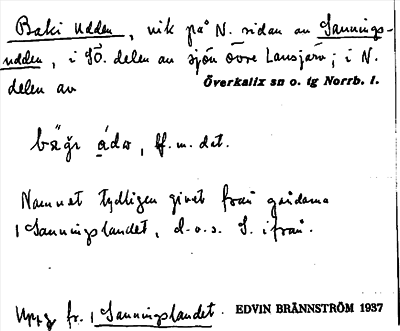 Baki udden, vik på N. sidan av Sannings-
udden, i SÖ. delen av sjön övre Lansjärv; i N.
delen av Överkalix sn o. tg Norrb. l.
ff. m. dat.
Namnet tydligen givet från gårdarna
i Sanningslandet, d.v.s. S. ifrån.
Uppg. fr. i Sanningslandet. EDVIN BRÄNNSTRÖM 1937